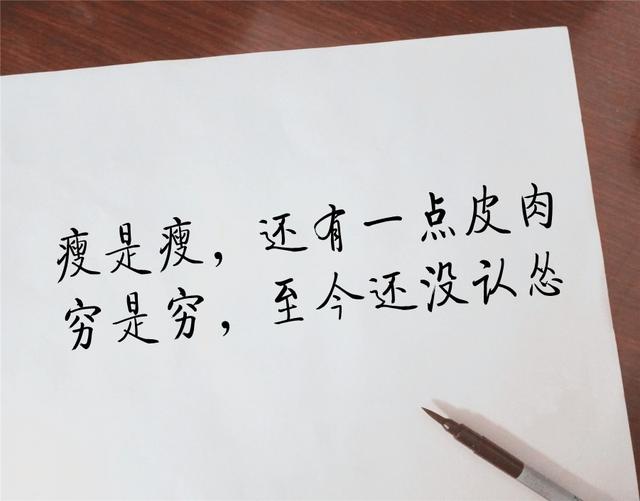 瘦是瘦，还有一点皮肉
穷是穷，至今还没认怂